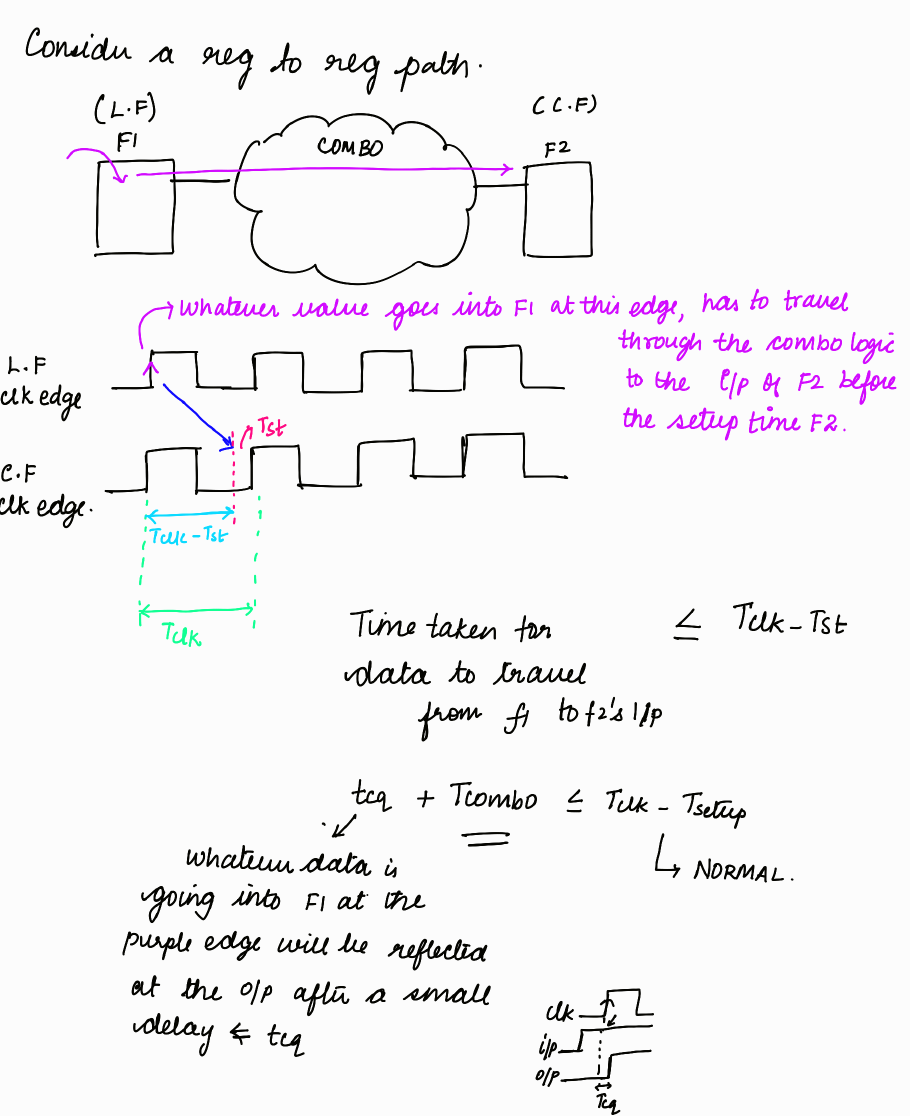 Consider a reg to reg path.
(L.F)
F1
COMBO
(C.F)
F2
Whatever value goes into F1 at this edge, has to travel
through the combo logic
to the i/p of F2 before
the setup time F2.
L.F
clk edge
Tst
C.F
clk edge.
Tclk-Tst
Tclk
Time taken for
data to travel
from f1 to f2's i/p
≤ Tclk - Tst
tcq + Tcombo ≤ Tclk - Tsetup
NORMAL.
whatever data is
going into F1 at the
purple edge will be reflected
at the o/p after a small
delay ⇐ tcq
clk
i/p
o/p
Tcq